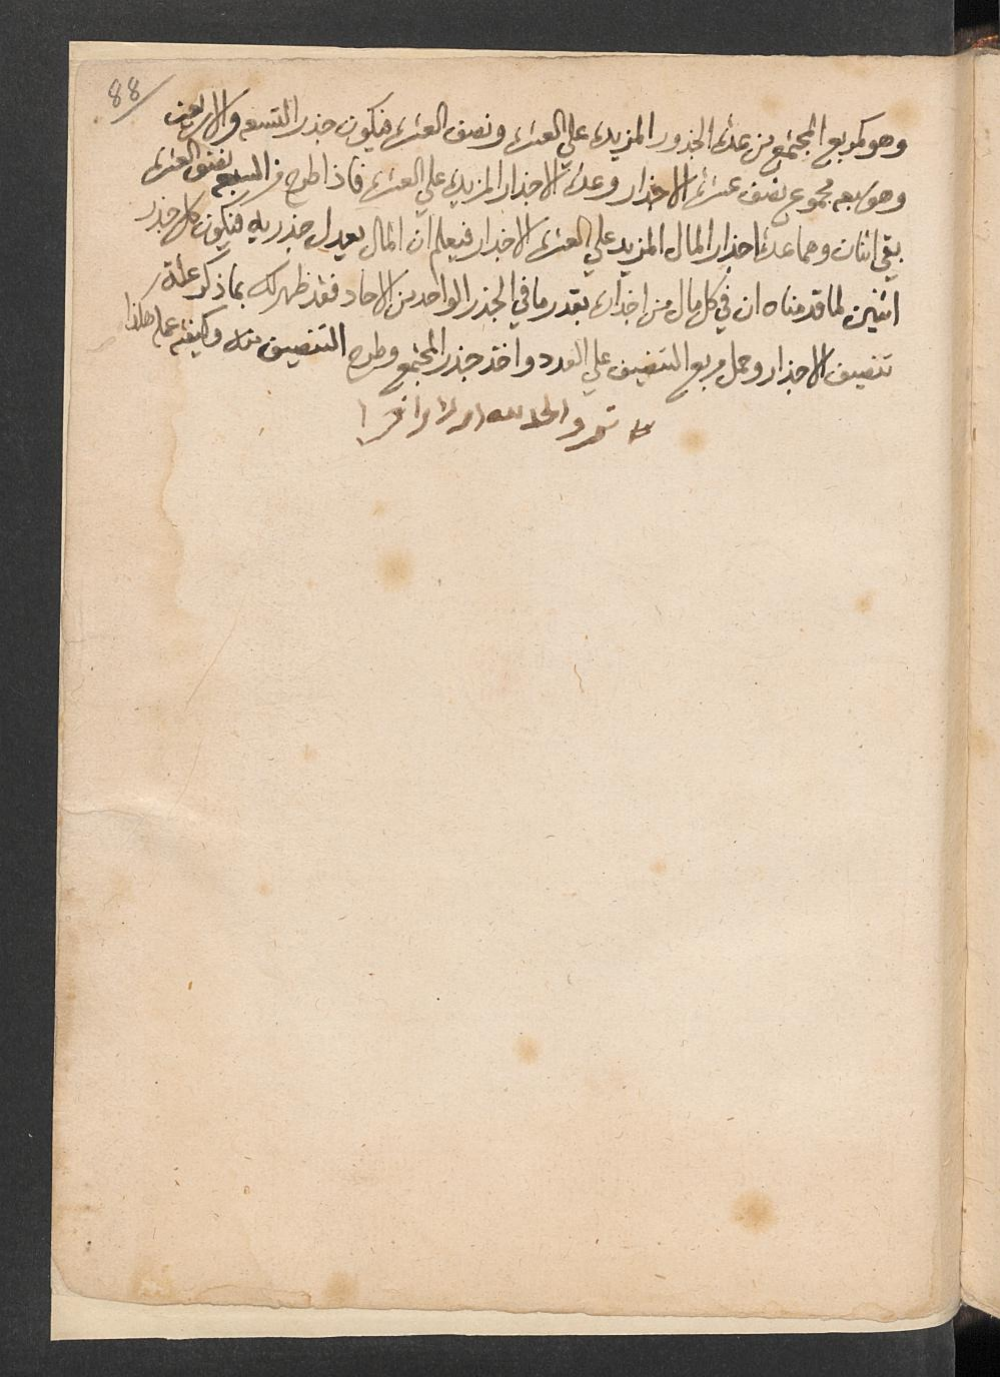 88
وهو كمربع المجتمع من عدة الجذور المزيدة علي العشرة ونصف العشرة فيكون جذر التسعه والاربعين
وهو سبعه مجموع نصف عشرة الاجذار وعدة الاجذار المزيدة علي العشرة فاذا طرح من السبعه نصف العشرة
بقي اثنان وهما عدة اجذار المال المزيد علي العشرة الاجذار فيعلم ان المال يعدل جذريه فيكون كل جذر
اثنين لما قدمناه ان في كل مال من اجذاره بقدر ما في الجذر الواحد من الاحاد فقد ظهر لك بما ذكر علة
تنصيف الاجذار وحمل مربع التنصيف علي العدد واخذ جذر المجتمع وطرح التنصيف منه وكيفية عمله هكذا
تم والحمد لله اولا واخرا